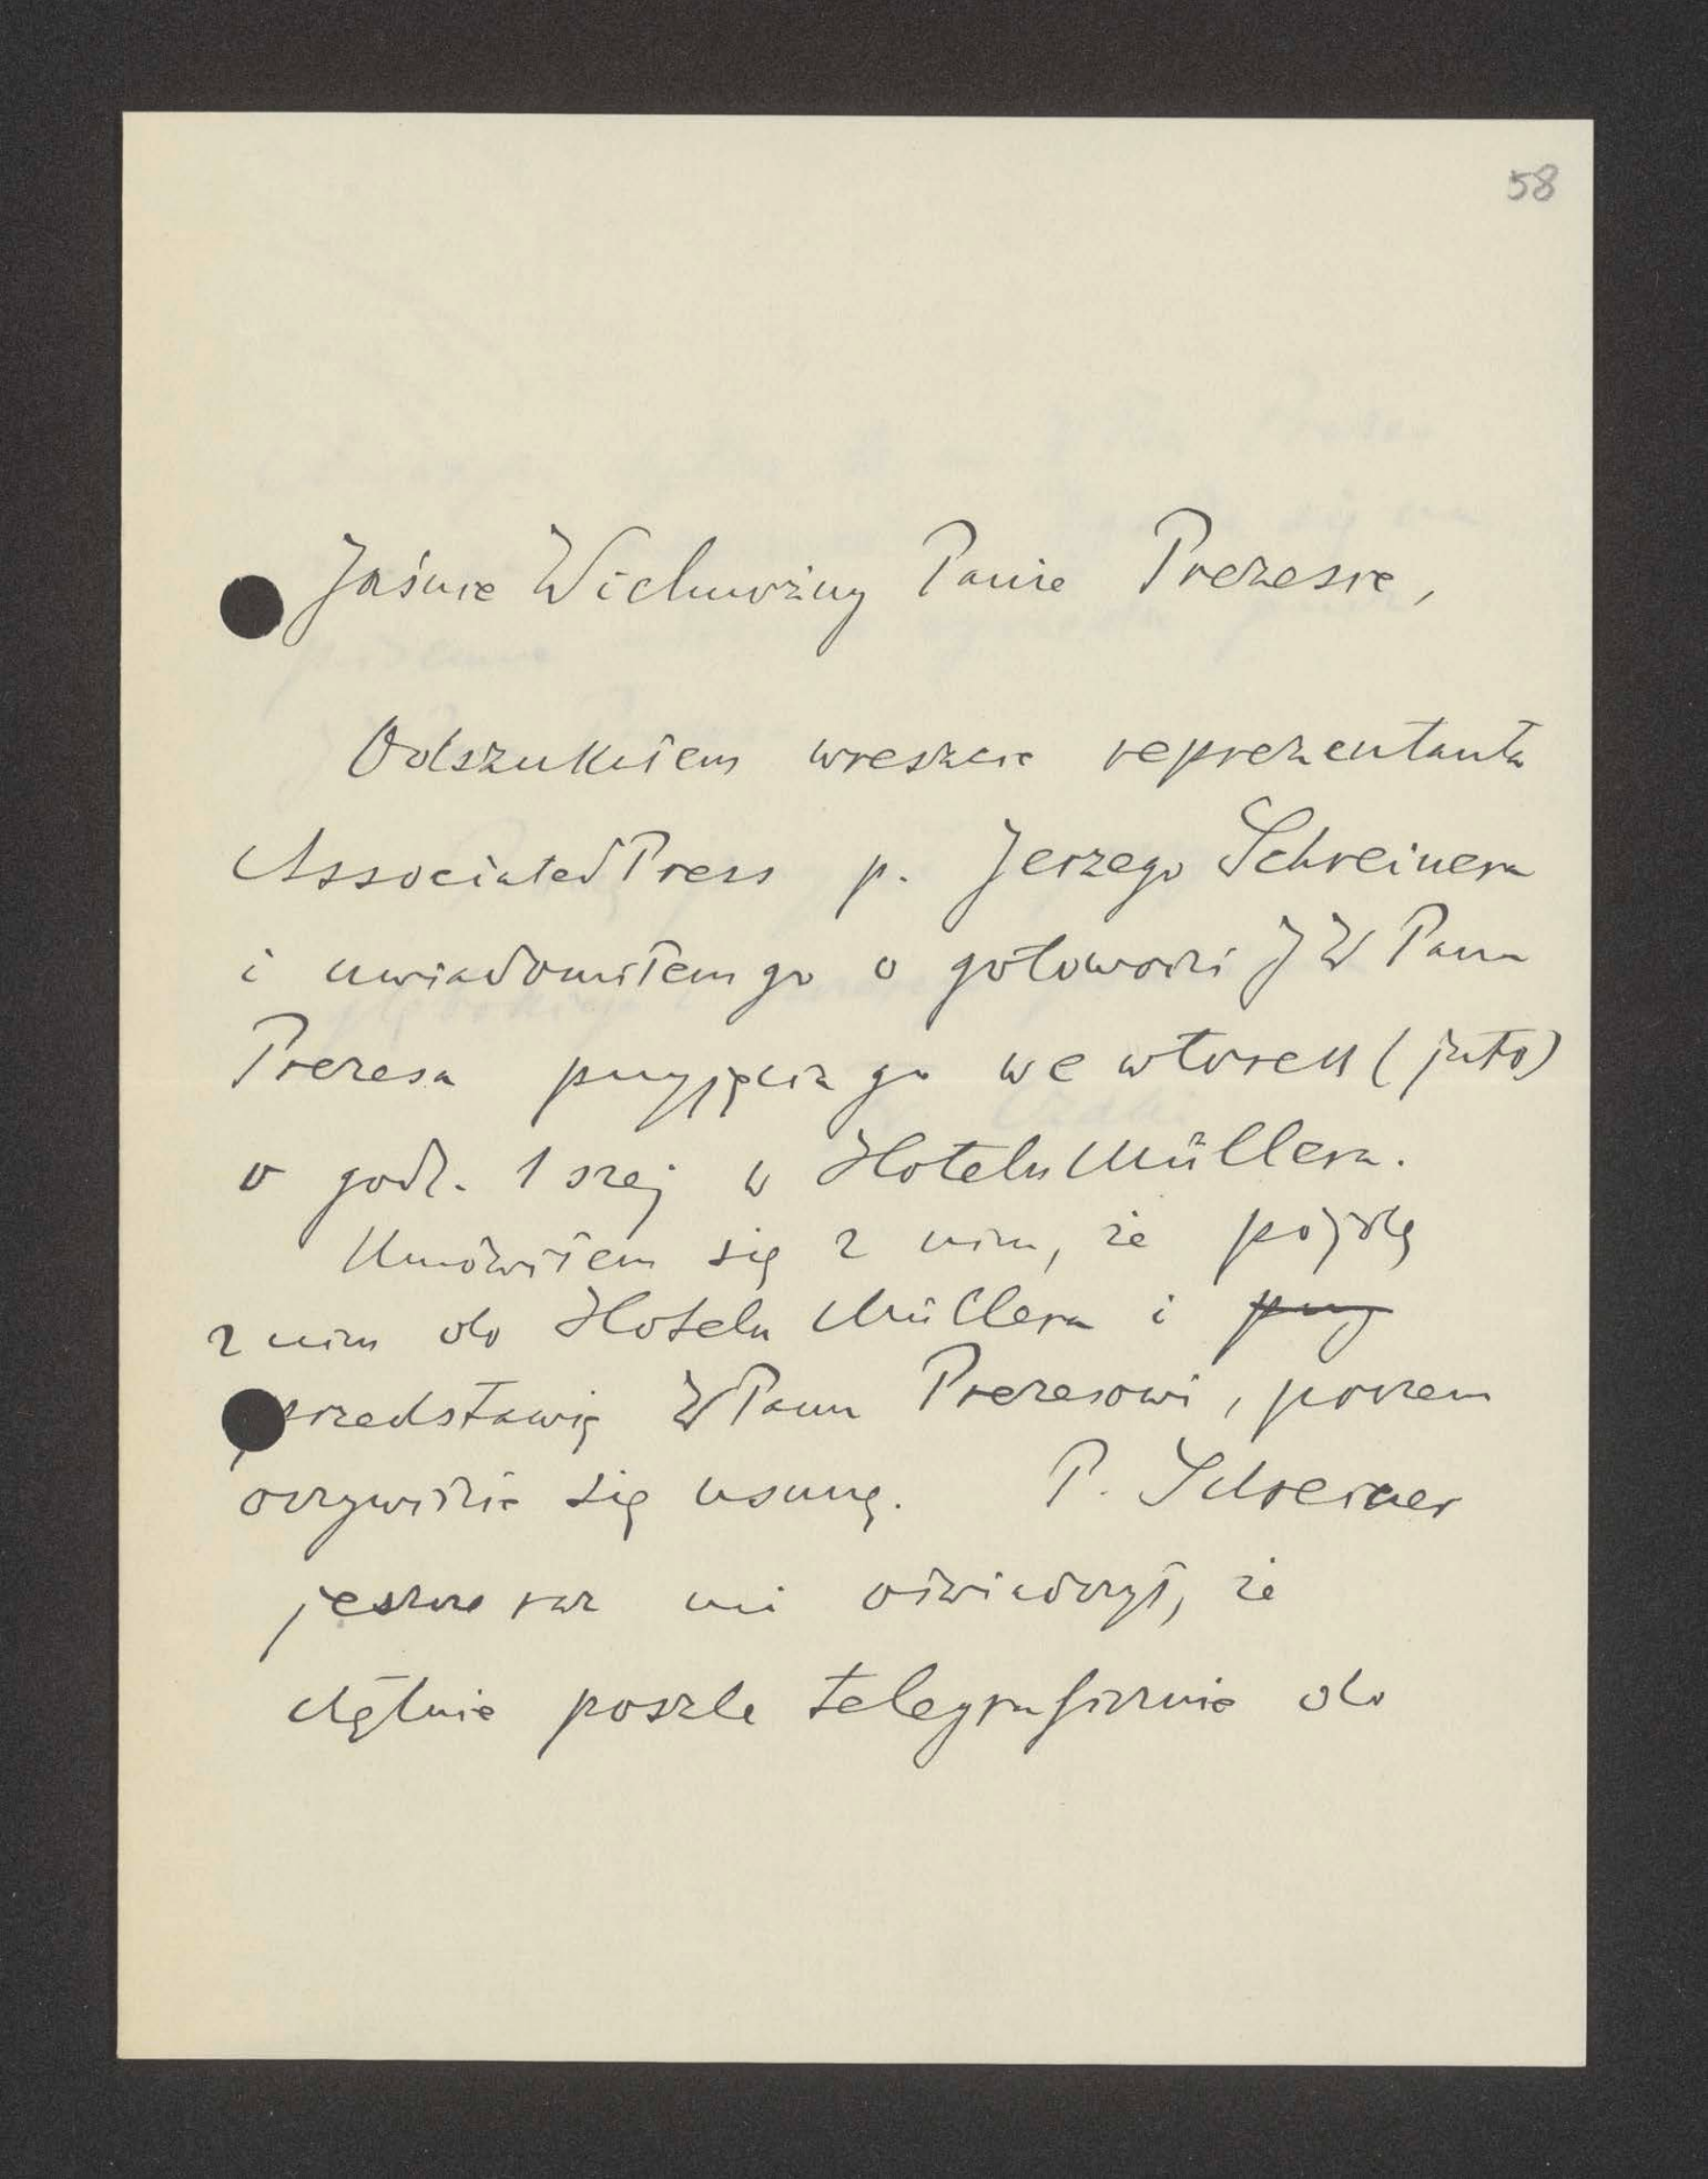 58
Jaśnie Wielmożny Panie Prezesie,
Odszukałem wreszcie reprezentanta
Associated Press p. Jerzego Schreinera
i uwiadomiłem go o gotowości JW Pana
Prezesa przyjęcia go we wtorek (jutro)
o godz. 1 szej w Hotelu Müllera.
Umówiłem się z nim, że pójdę
z nim do Hotelu Müllera i przy
przedstawię WPanu Prezesowi, poczem
oczywiście się usunę. P. Schreiner
jeszcze raz mi oświadczył, że
chętnie poszle telegraficznie do